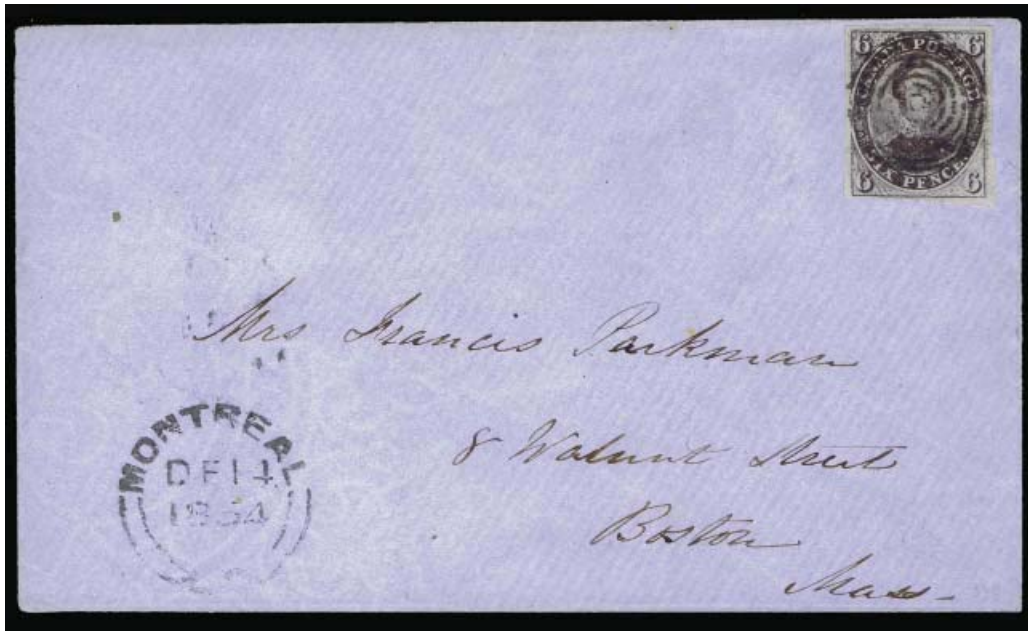 6 CANADA POSTAGE 6
6 SIX PENCE 6
Mrs Francis Parkman
8 Walnut Street
Boston
Mass-
MONTREAL
DE 14
1854